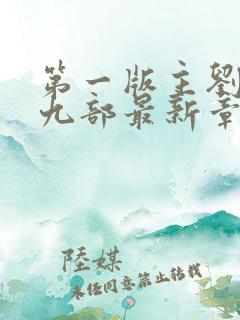 第一版主劉
九部最新章
陸媒
未經同意禁止轉載